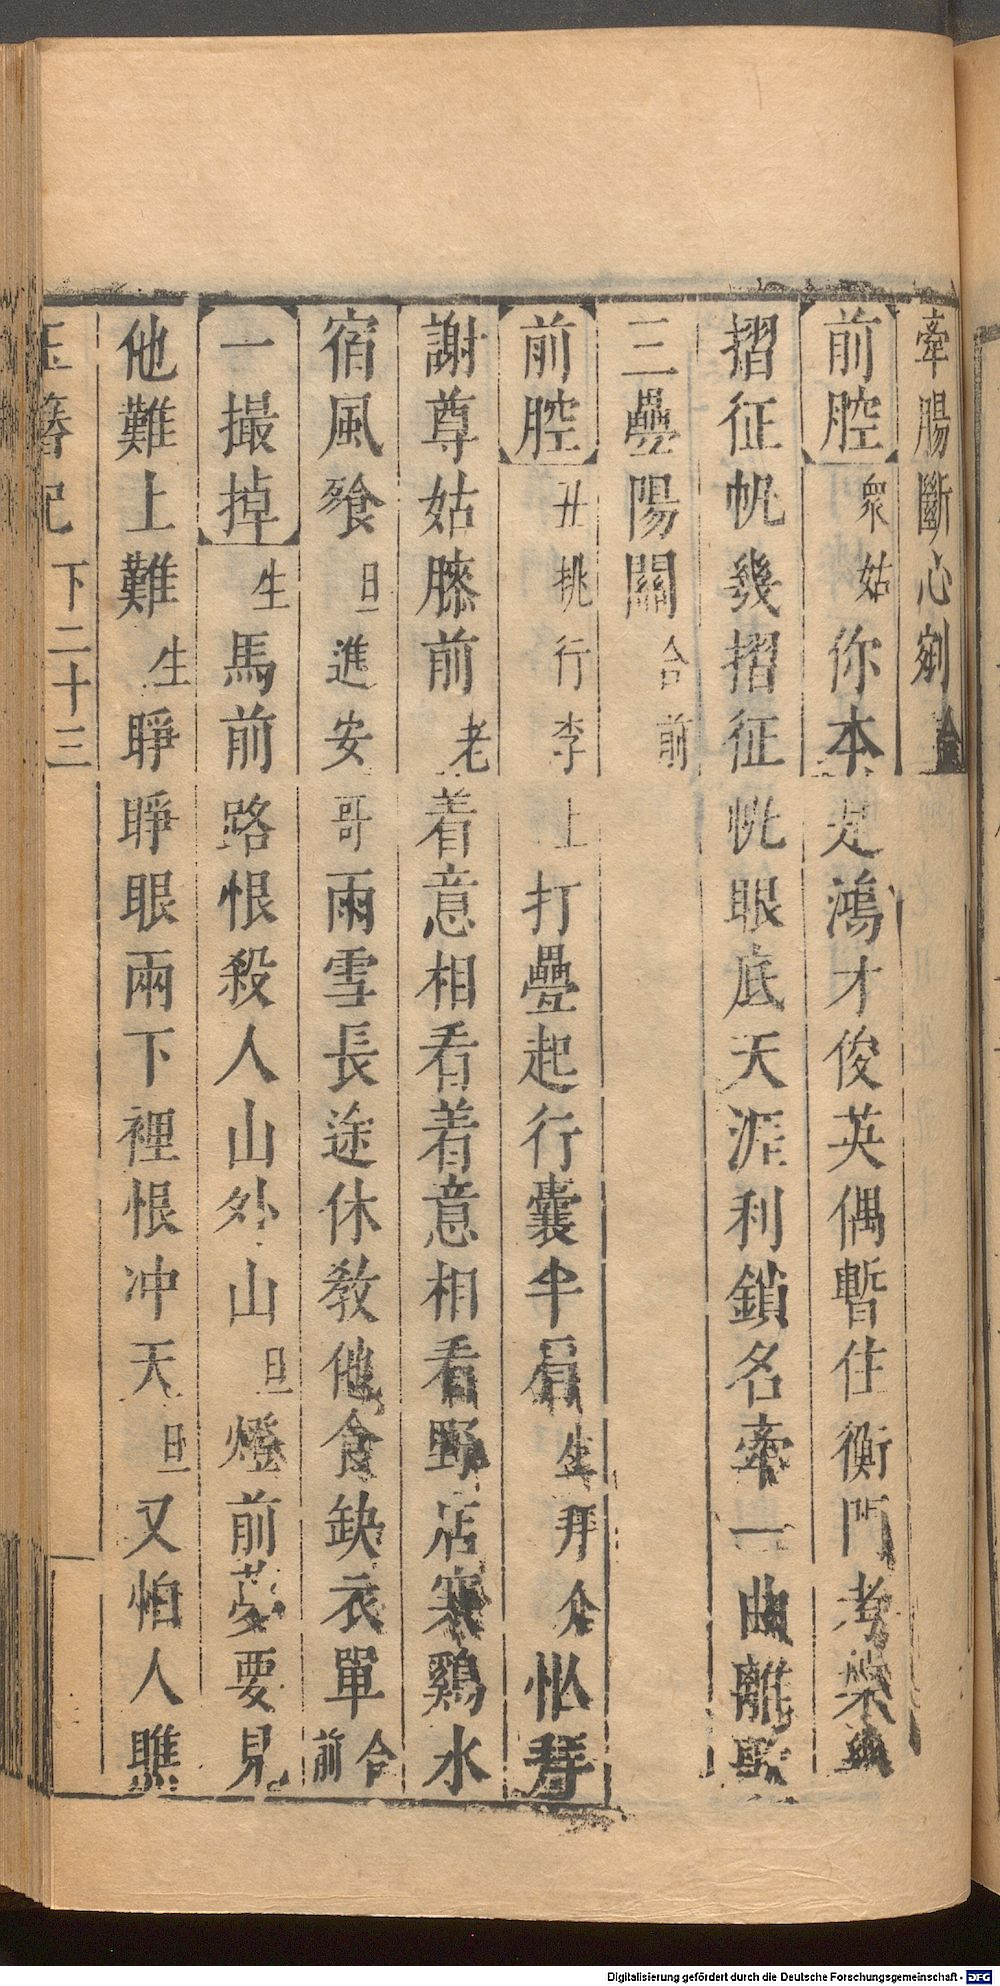 牽腸斷心剜合
前腔 衆姑 你本是鴻才俊英偶暫住衡門考槃幾
摺征帆幾摺征帆眼底天涯利鎖名牽一曲離歌
三疊陽關 合前
前腔 丑挑行李上 打疊起行囊半肩 生拜介 忙拜
謝尊姑膝前 老 着意相看着意相看野店寒鷄水
宿風飱 旦 進安哥 雨雪長途休教他食缺衣單 合前
一撮掉 生 馬前路恨殺人山外山 旦 燈前夢要見
他難上難 生 睜睜眼兩下裡恨冲天 旦 又怕人瞧
玉簪記 下 二十三
Digitalisierung gefördert durch die Deutsche Forschungsgemeinschaft - DFG